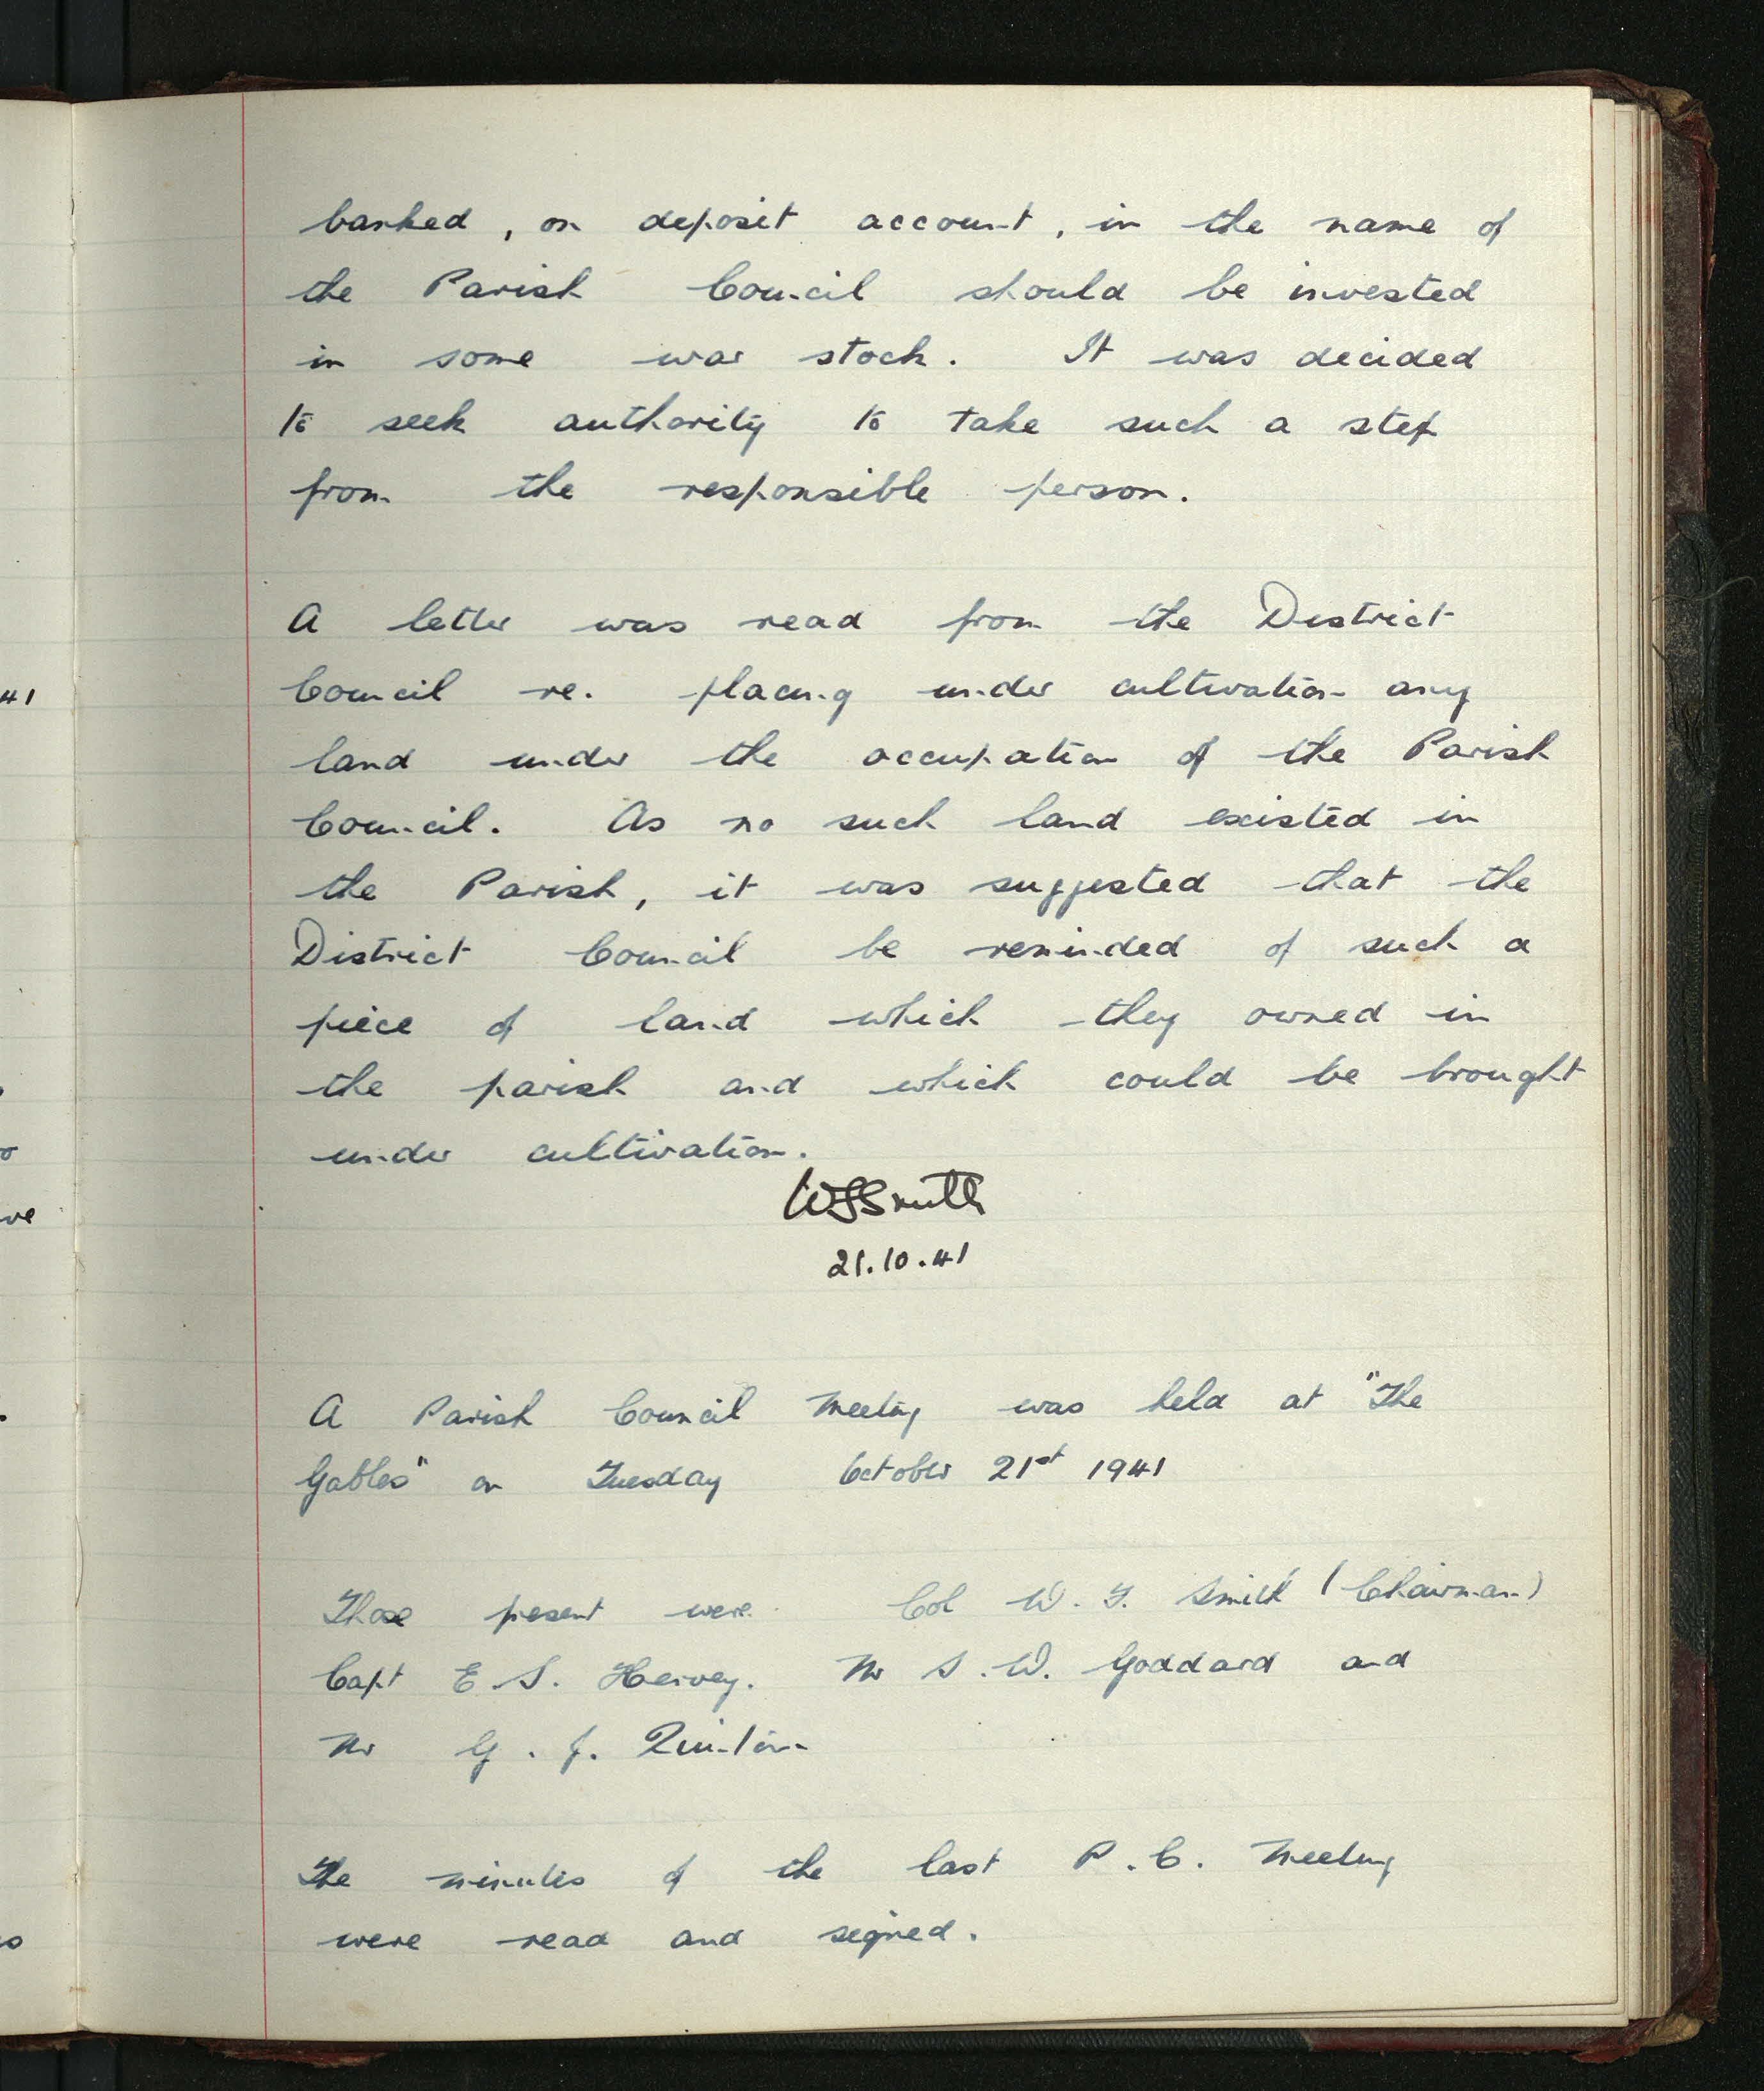 banked, on deposit account, in the name of
the Parish Council should be invested
in some war stock. It was decided
to seek authority to take such a step
from the responsible person.
A letter was read from the District
Council re. placing under cultivation any
land under the occupation of the Parish
Council. As no such land existed in
the Parish, it was suggested that the
District Council be reminded of such a
piece of land which they owned in
the parish and which could be brought
under cultivation.
WFSmith
21.10.41
A Parish Council Meeting was held at "The
Gables" on Tuesday October 21st 1941
Those present were Col W. F. Smith (Chairman)
Capt E S. Hervey. Mr S. W. Goddard and
Mr G. J. Quinton
The minutes of the last P.C. Meeting
were read and signed.
41
ve